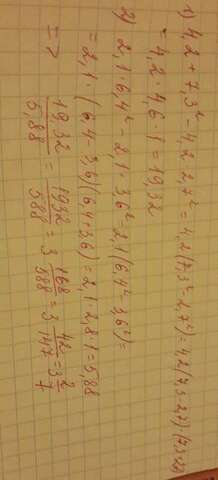 1) 4,2 + 7,3² - 4,2 · 2,7² = 4,2(7,3² - 2,7²) = 4,2(7,3-2,7)
4,2 · 4,6 · 1 = 19,32
2) 2,1 · 6,4² - 2,1 · 3,6² = 2,1(6,4² - 3,6²) =
= 2,1 · (6,4 - 3,6)(6,4+3,6) = 2,1 · 2,8 · 1 = 5,88
=> 19,32/5,88 = 1932/588 = 3 168/588 = 3 42/147 = 3 2/7